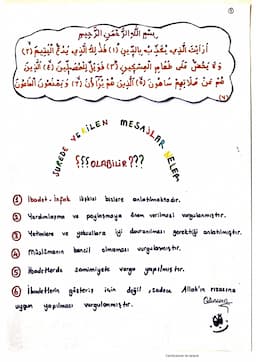 ①
بِسْمِ اللّٰهِ الرَّحْمٰنِ الرَّحِيمِ
اَرَاَيْتَ الَّذِي يُكَذِّبُ بِالدِّينِ (١) فَذٰلِكَ الَّذِي يَدُعُّ الْيَتِيمَ (٢)
وَلَا يَحُضُّ عَلٰى طَعَامِ الْمِسْكِينِ (٣) فَوَيْلٌ لِلْمُصَلِّينَ (٤) اَلَّذِينَ
هُمْ عَنْ صَلَاتِهِمْ سَاهُونَ (٥) اَلَّذِينَ هُمْ يُرَاؤُنَ (٦) وَيَمْنَعُونَ الْمَاعُونَ
(٧)
SUREDE VERİLEN MESAJLAR NELER
OLABİLİR ???
① İbadet-İnfak ilişkisi bizlere anlatılmaktadır.
② Yardımlaşma ve paylaşmaya önem verilmesi vurgulanmıştır.
③ Yetimlere ve yoksullara iyi davranılması gerektiği anlatılmıştır.
④ Müslümanın bencil olmaması vurgulanmıştır.
⑤ İbadetlerde samimiyete vurgu yapılmıştır.
⑥ İbadetlerin gösteriş için değil, sadece Allah'ın rızasına
uygun yapılması vurgulanmıştır.